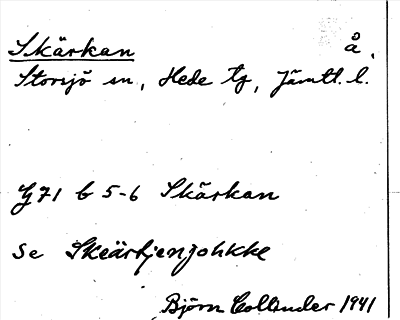 Skärkan å.
Storsjö sn, Hede tg, Jämtl. l.
G 71 b 5-6 Skärkan
se Skeärkjenjohkke
Björn Collinder 1941